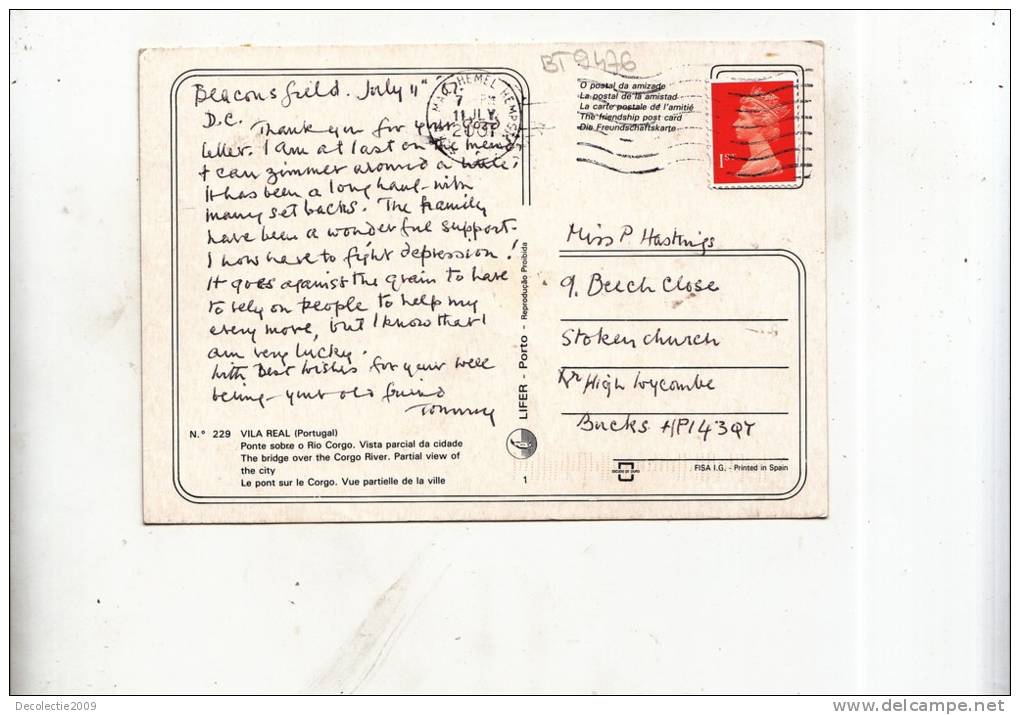 BT 9476
Beaconsfield. July 11"
D.C.
Thank you for your good
letter. I am at last on the mend
& can zimmer around a little!
It has been a long haul - with
many set backs. The family
have been a wonderful support.
I now have to fight depression!
It goes against the grain to have
to rely on people to help my
every move, but I know that I
am very lucky.
With Best Wishes for your well
being - your old friend
Tommy
HEMEL HEMPS
11 JLY
2001
O postal da amizade
La postal de la amistad
La carte postale de l'amitié
The friendship post card
Die Freundschaftskarte
1ST
Miss P. Hastings
9. Beech Close
Stokenchurch
Nr High Wycombe
Bucks HP14 3QY
LIFER - Porto - Reprodução Proibida
N.° 229 VILA REAL (Portugal)
Ponte sobre o Rio Corgo. Vista parcial da cidade
The bridge over the Corgo River. Partial view of
the city
Le pont sur le Corgo. Vue partielle de la ville
1
FISA I.G. - Printed in Spain
Decolectie2009
www.delcampe.net